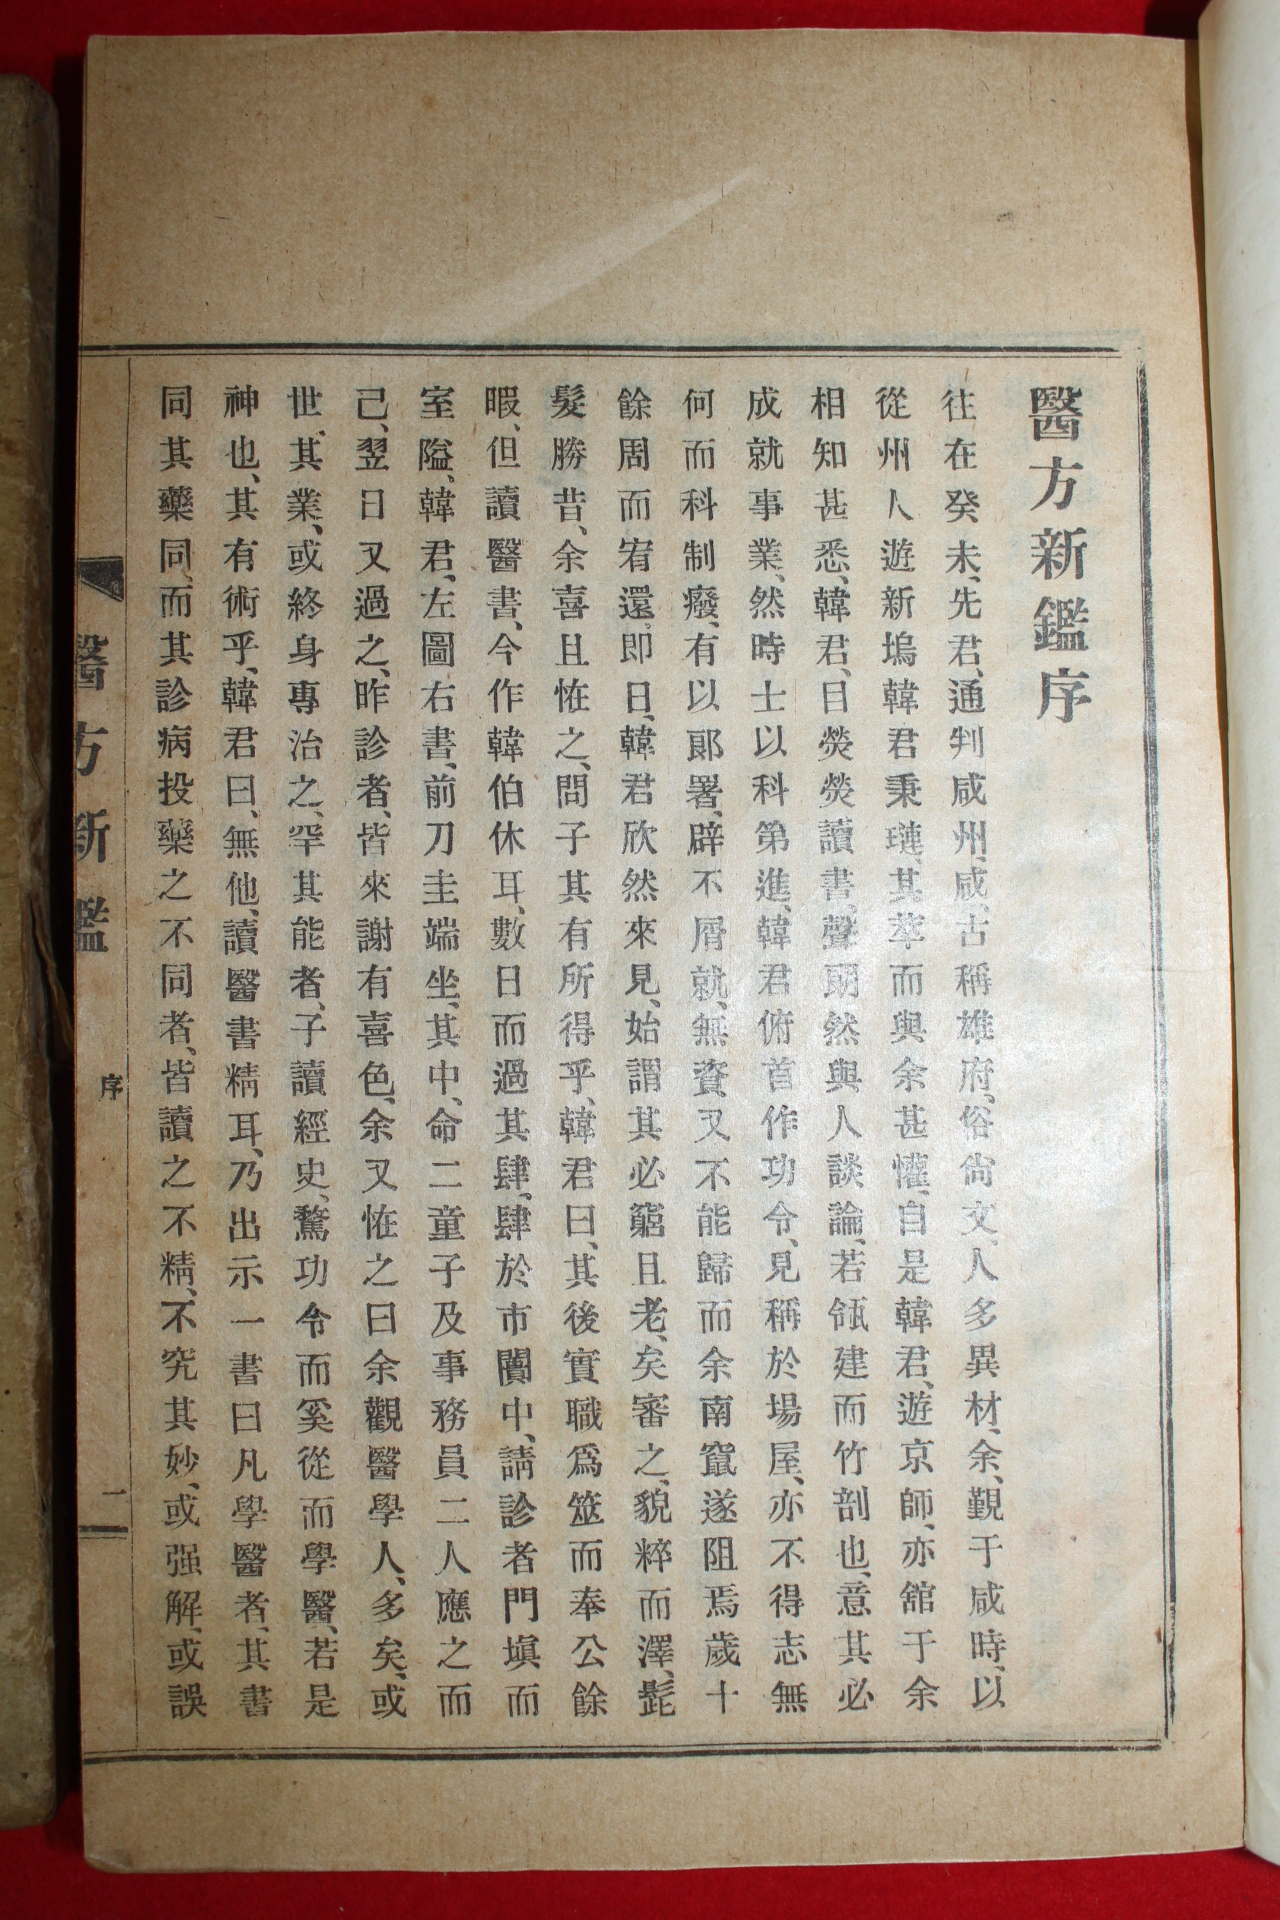 醫方新鑑序
往在癸未、先君、通判咸州、咸、古稱雄府、俗尙文、人多異材、余、覲于咸時、以
從州人遊新塢韓君秉璉、其萃而與余甚懽、自是韓君、遊京師、亦舘于余
相知甚悉、韓君、目熒熒讀書、聲朗然與人談論、若瓴建而竹剖也、意其必
成就事業、然時士以科第進、韓君俯首作功令、見稱於場屋、亦不得志無
何而科制癈、有以郞署、辟不屑就、無資、又不能歸而余南竄遂阻焉歲十
餘周而宥還、即日、韓君欣然來見、始謂其必窮且老、矣審之、貌粹而澤、髭
髮勝昔、余喜且恠之、問子其有所得乎、韓君曰、其後實職爲筮而奉公餘
暇、但讀醫書、今作韓伯休耳、數日而過其肆、肆於市闤中、請診者門塡而
室隘、韓君、左圖右書、前刀圭端坐、其中、命二童子及事務員二人應之而
己、翌日又過之、昨診者、皆來謝有喜色、余又恠之曰余觀醫學人、多矣、或
世、其業、或終身專治之、罕其能者、子讀經史、騖功令而奚從而學醫、若是
神也、其有術乎、韓君曰、無他、讀醫書精耳、乃出示一書曰凡學醫者、其書
同其藥同、而其診病投藥之不同者、皆讀之不精、不究其妙、或强解、或誤
醫方新鑑
序
一